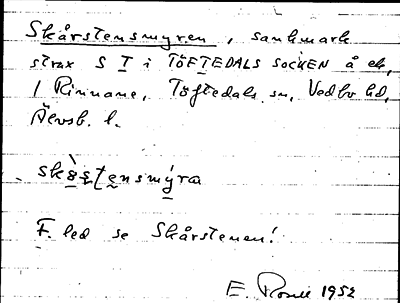 Skårstensmyren, sankmark
strax S T i TÖFTEDALS SOCKEN å ek,
1 Rinnane, Töftedals sn, Vedbo hd,
Älvsb. l.
skǫ̀ṣṭẹnsmy̬ra
F. led se Skårstenen!
E. 1952